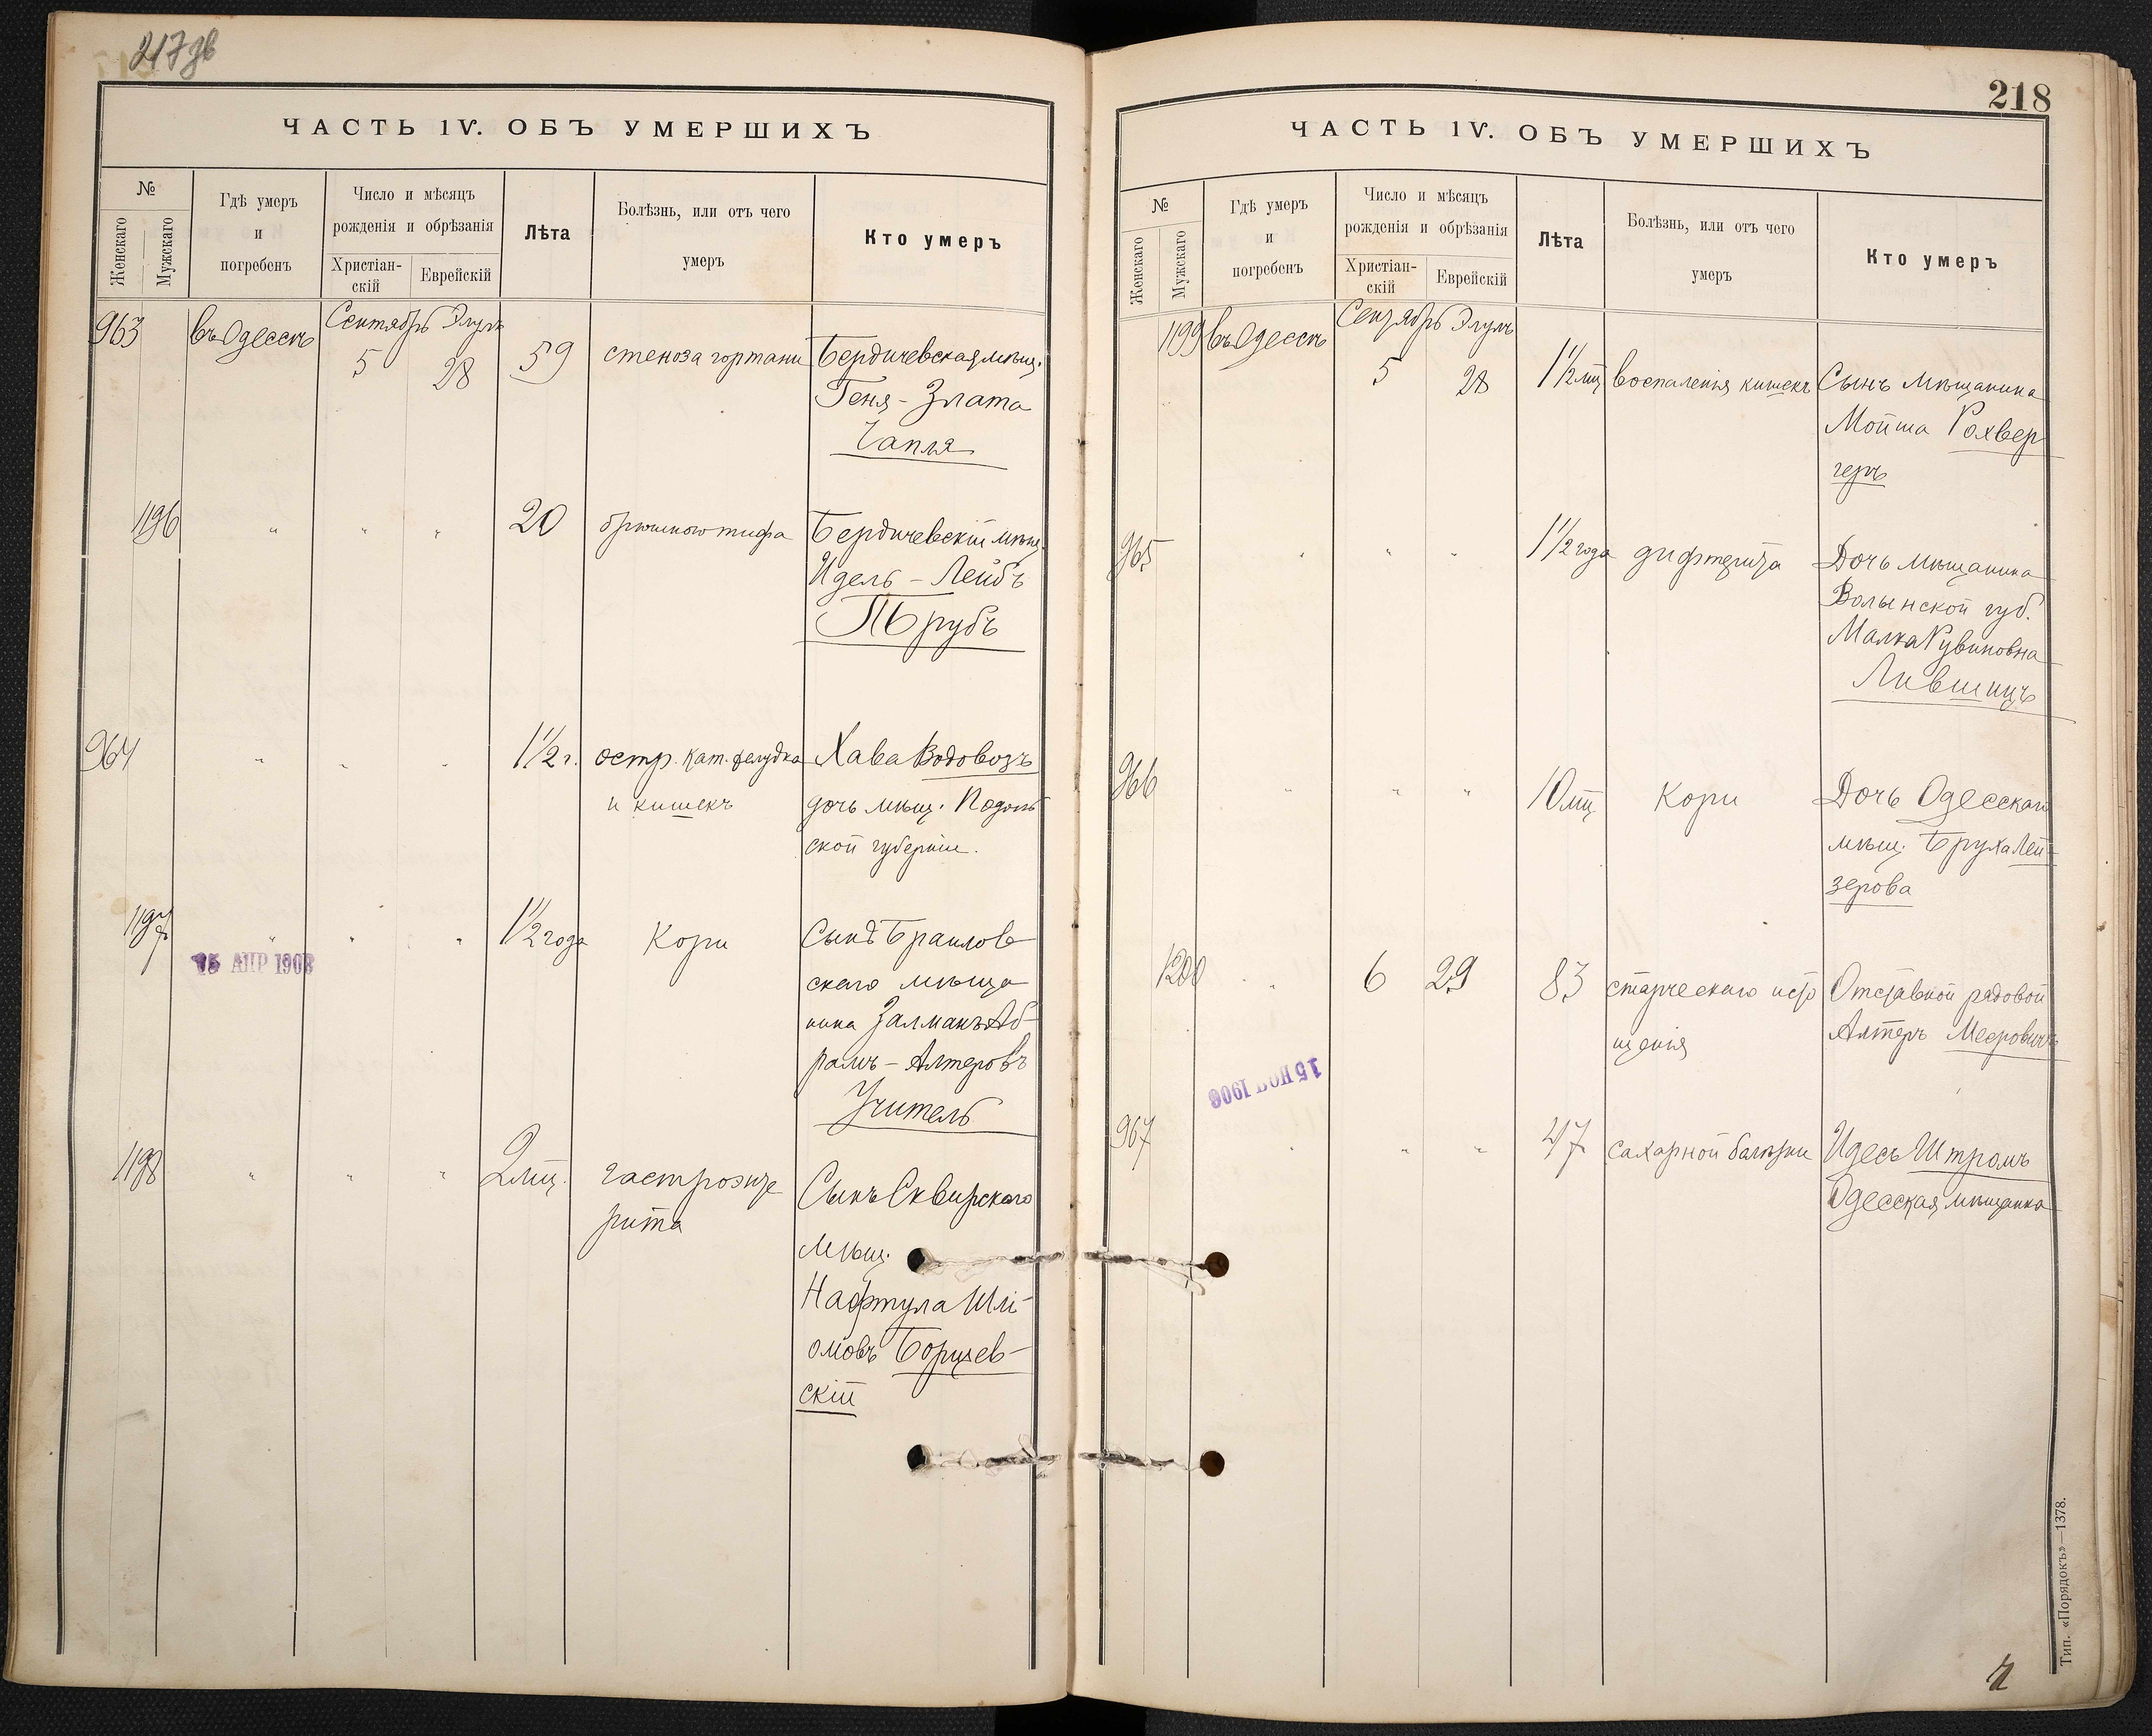 217 об
ЧАСТЬ IV. ОБЪ УМЕРШИХЪ
№
Женскаго
Мужскаго
Гдѣ умеръ
и
погребенъ
Число и мѣсяцъ
рожденія и обрѣзанія
Христіан-
скій
Еврейскій
Лѣта
Болѣзнь, или отъ чего
умеръ
Кто умеръ
963 въ Одессѣ Сентябрь Элулъ
5 28 59 стеноза гортани Бердичевская мѣщ.
Геня - Злата
Чапля
1196 " " " 20 брюшного тифа Бердичевскій мѣщ.
Идель - Лейбъ
Трубъ
964 " " " 1 1/2 г. остр. кат. желудка Хава Водовозъ
и кишекъ дочь мѣщ. Подоль
ской губерніи.
1197 " " " 1 1/2 года Кори Сынъ Браилов
15 АПР 1908
скаго мѣща
нина Залманъ Аб-
рамъ - Алтеровъ
Учитель
1198 " " " 2 мц. гастроэнте
рита
Сынъ Сквирскаго
мѣщ.
Нафтула Шлі-
омовъ Борщев-
скій
218
ЧАСТЬ IV. ОБЪ УМЕРШИХЪ
№
Женскаго
Мужскаго
Гдѣ умеръ
и
погребенъ
Число и мѣсяцъ
рожденія и обрѣзанія
Христіан-
скій
Еврейскій
Лѣта
Болѣзнь, или отъ чего
умеръ
Кто умеръ
1199 въ Одессѣ Сентябрь Элулъ
5 28 1 1/2 мц воспаленія кишекъ Сынъ мѣщанина
Мойша Рохвер
геръ
965 " " " 1 1/2 года дифтерита Дочь мѣщанина
Волынской губ.
Малка Рувиновна
Лившицъ
966 " " " 10 мц. Кори Дочь Одесскаго
мѣщ. Бруха Лей-
зерова
1200 " 6 29 83 старческаго исто
щенія
Отставной рядовой
Алтеръ Меировичъ
15 НОЯ 1906
967 " " " 47 сахарной болѣзни Идесъ Штромъ
Одесская мѣщанка
Тип. «Порядокъ»—1378.